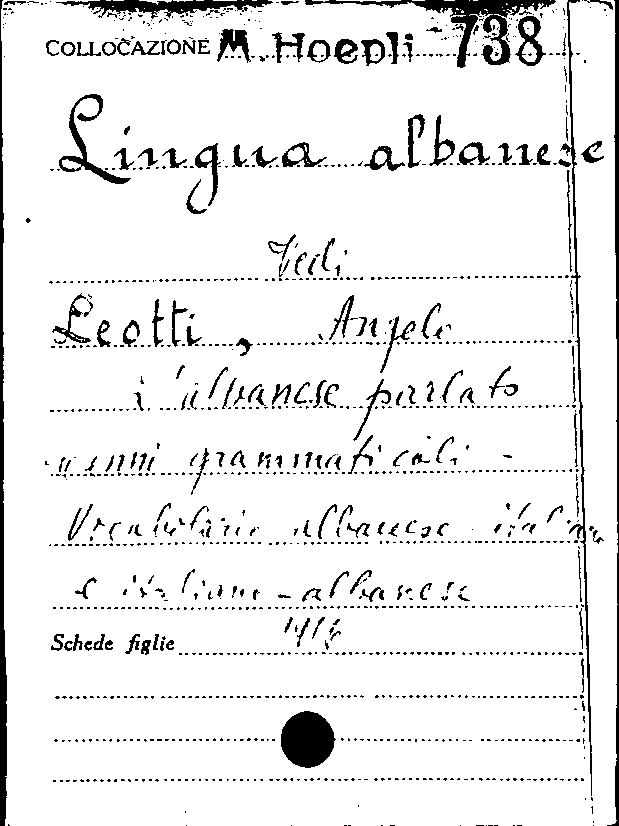 COLLOCAZIONE M. Hoepli 738
Lingua albanese
Vedi
Leotti, Angelo
L'albanese parlato
cenni grammaticali -
Vocabolario albanese-italiano
e italiano-albanese
Schede figlie